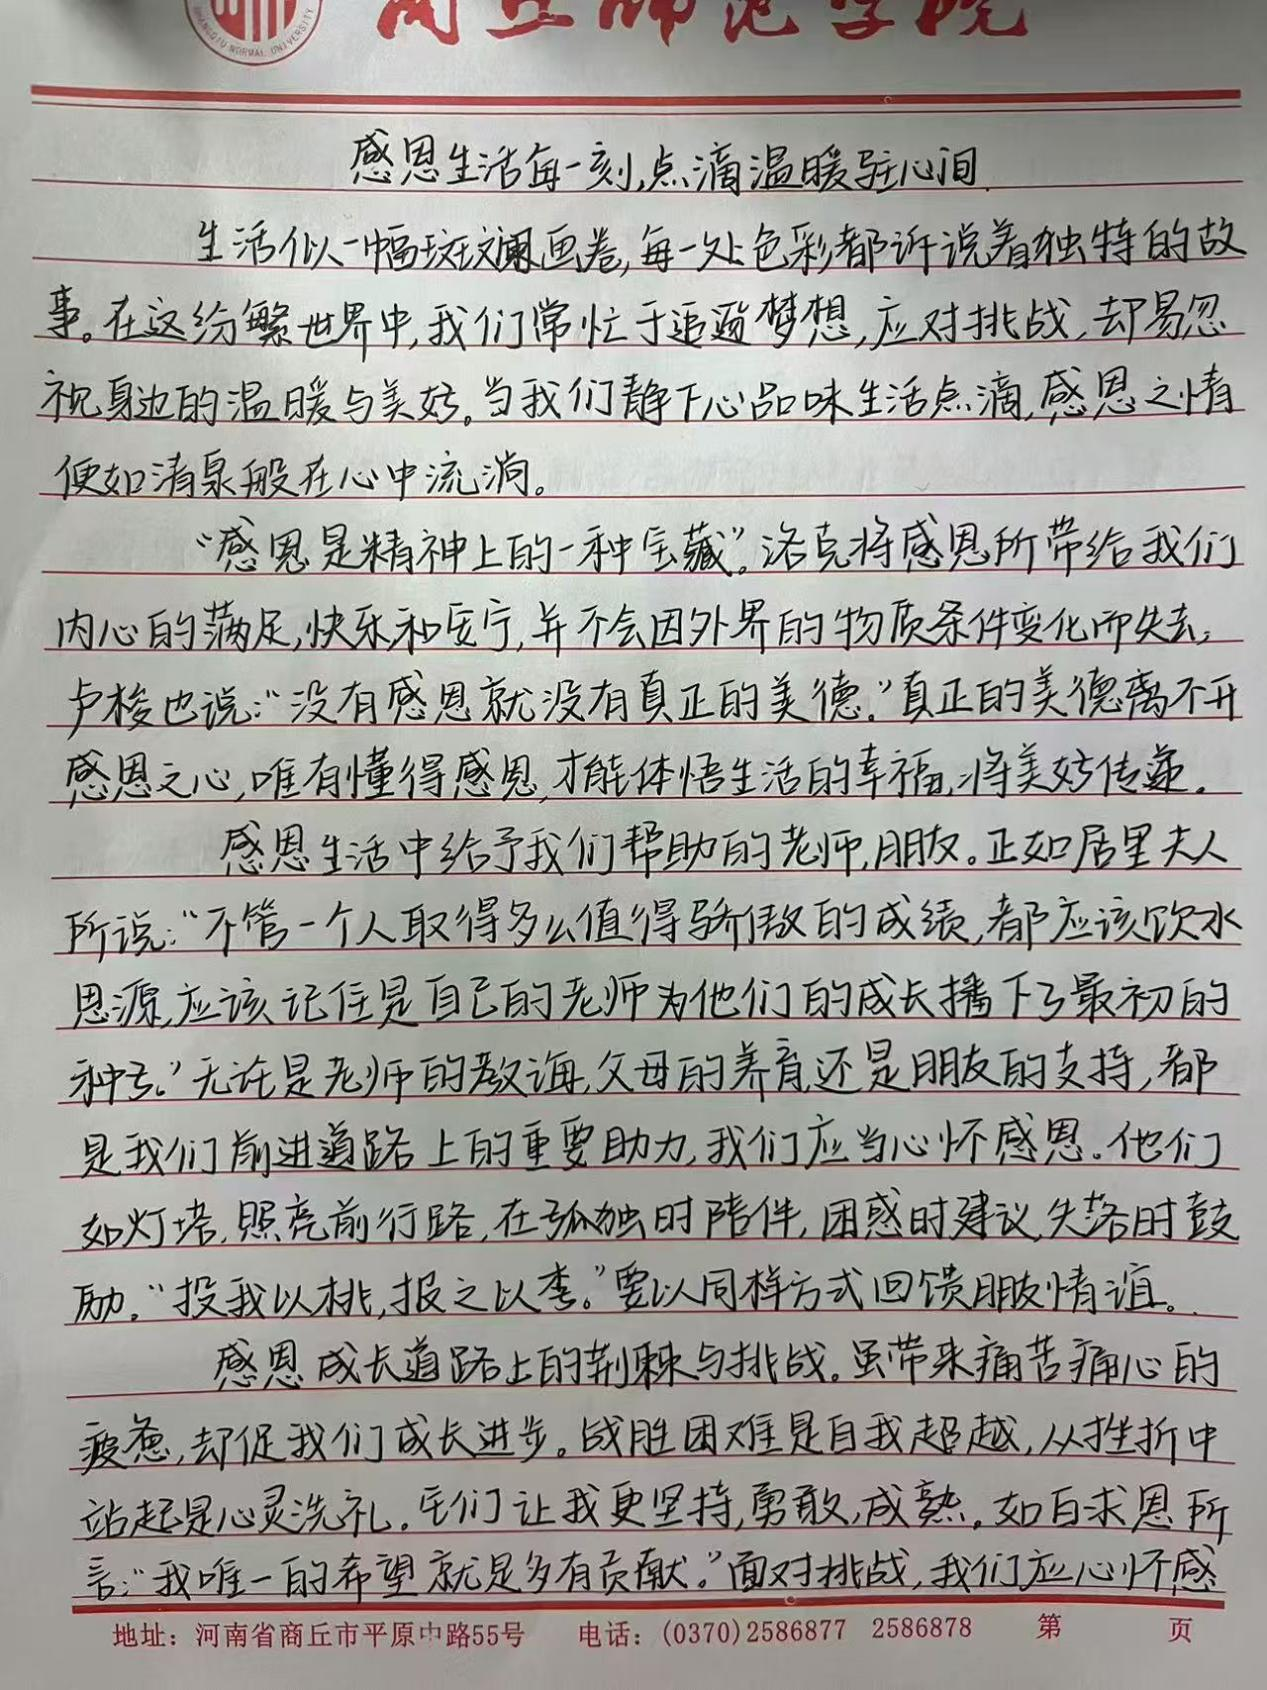 商丘师范学院
SHANGQIU NORMAL UNIVERSITY
感恩生活每一刻,点滴温暖驻心间.
生活似一幅斑斓画卷,每一处色彩都诉说着独特的故
事。在这纷繁世界中,我们常忙于追逐梦想,应对挑战,却易忽
视身边的温暖与美好。当我们静下心品味生活点滴,感恩之情
便如清泉般在心中流淌。
“感恩是精神上的一种宝藏”。洛克将感恩所带给我们
内心的满足,快乐和安宁,并不会因外界的物质条件变化而失去,
卢梭也说:“没有感恩就没有真正的美德.”真正的美德离不开
感恩之心,唯有懂得感恩,才能体悟生活的幸福,将美好传递.
感恩生活中给予我们帮助的老师,朋友。正如居里夫人
所说:“不管一个人取得多么值得骄傲的成绩,都应该饮水
思源,应该记住是自己的老师为他们的成长播下了最初的
种子.”无论是老师的教诲,父母的养育,还是朋友的支持,都
是我们前进道路上的重要助力,我们应当心怀感恩.他们
如灯塔,照亮前行路,在孤独时陪伴,困惑时建议,失落时鼓
励.“投我以桃,报之以李。”要以同样方式回馈朋友情谊。
感恩成长道路上的荆棘与挑战。虽带来痛苦痛心的
疲惫,却促我们成长进步。战胜困难是自我超越,从挫折中
站起是心灵洗礼.它们让我更坚持,勇敢,成熟.如白求恩所
言:“我唯一的希望就是多有贡献.”面对挑战,我们应心怀感
地址：河南省商丘市平原中路55号 电话：(0370)2586877 2586878 第 页